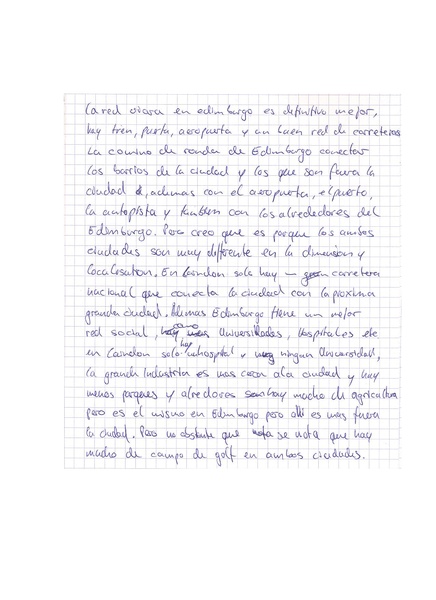 La red viara en edimburgo es definitivo mejor,
hay tren, puerta, aeropuerta y un buen red de carreteras
La camino de ronda de Edimburgo conectar
los barrios de la ciudad y los que son fuera la
ciudad, ademas con el aeropuerta, el puerto,
la autopista y tambien con los alrededores del
Edimburgo. Pero creo que es porque los ambos
ciudades son muy differente en la dimension y
Localisation. En solo hay carretera
nacional que conecta la ciudad con la proxima
grande ciudad. Ademas Edimburgo tiene un mejor
red social, como Universidades, Hospitales etc
en solo hay un hospital y ninguna Universidad,
la grande Industria es mas cerca a la ciudad y hay
menos parques y alredores hay mucho de agricultura
pero es el mismo en Edimburgo pero alli es mas fuera
la ciudad. Pero no obstante que se nota que hay
mucho de campo de golf en ambos ciudades.